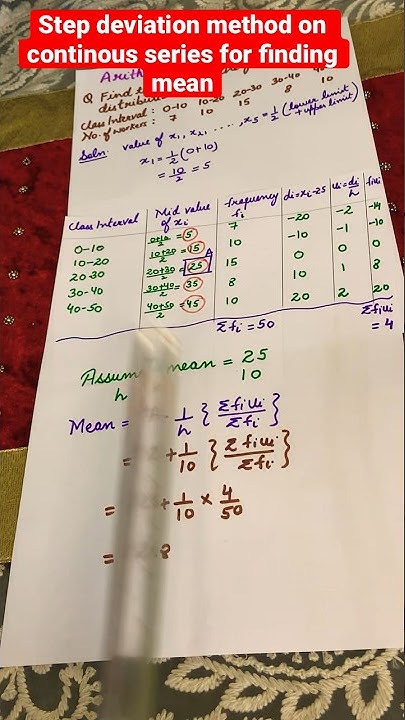 Step deviation method on
continous series for finding
mean
Arith
Q Find t
distribut
Class Interval : 0-10 10-20 20-30 30-40
No. of workers : 7 10 15 8 10
Soln. value of x₁, x₂, ...., x₅ = 1/2 (lower limit + upper limit)
x₁ = 1/2 (0+10)
= 10/2 = 5
Class Interval Mid value of xi frequency fi di=xi-25 ui=di/h fiui
0-10 0+10/2 = 5 7 -20 -2 -14
10-20 10+20/2 = 15 10 -10 -1 -10
20-30 20+30/2 = 25 A 15 0 0 0
30-40 30+40/2 = 35 8 10 1 8
40-50 40+50/2 = 45 10 20 2 20
Σfi = 50 Σfiui = 4
Assum mean = 25
h 10
Mean = 1/h { Σfiui/Σfi }
= + 1/10 { Σfiui/Σfi }
= + 1/10 × 4/50
= 8